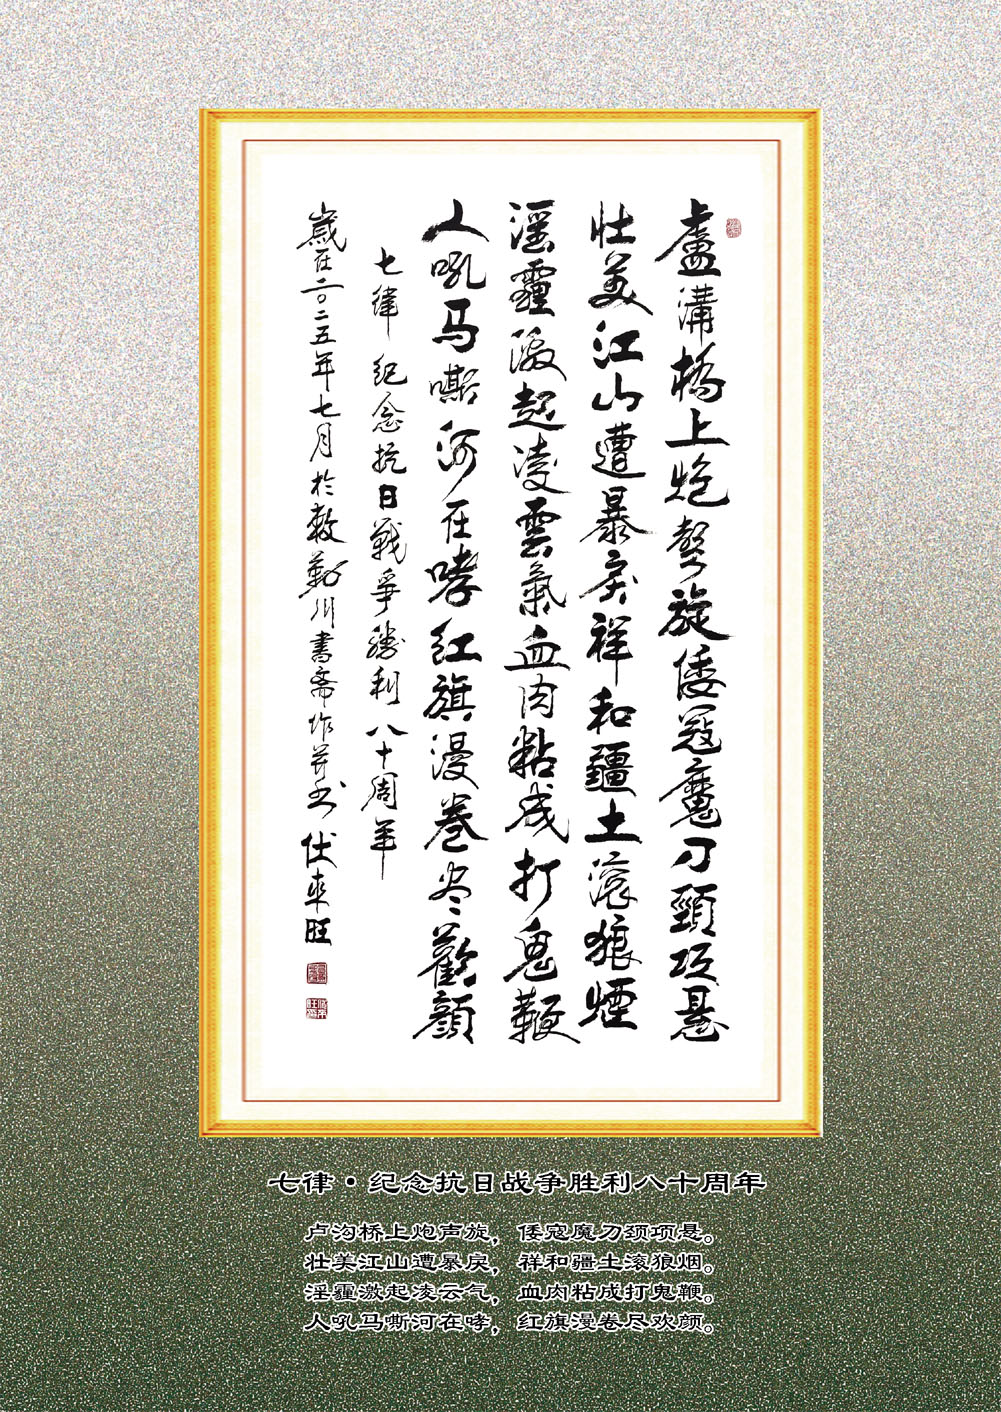 盧溝橋上炮聲旋倭寇魔刀頸項懸
壮美江山遭暴戾祥和疆土滾狼煙
淫霾激起凌雲氣血肉粘成打鬼鞭
人吼马嘶河在哮红旗漫卷尽歡顔
七律 纪念抗日戰爭勝利八十周年
歲在二〇二五年七月於敖勒川書斋作并书 伏來旺
七律·纪念抗日战争胜利八十周年
卢沟桥上炮声旋，倭寇魔刀颈项悬。
壮美江山遭暴戾，祥和疆土滚狼烟。
淫霾激起凌云气，血肉粘成打鬼鞭。
人吼马嘶河在哮，红旗漫卷尽欢颜。